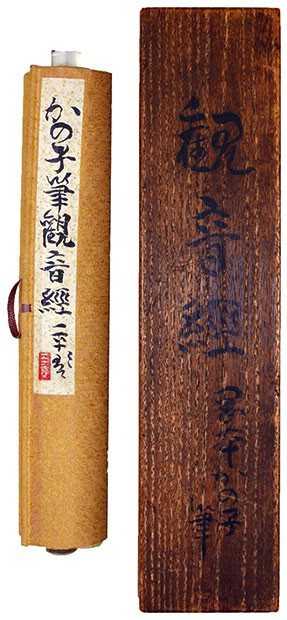 観音經 岡本かの子筆
かの子筆觀音經 一平